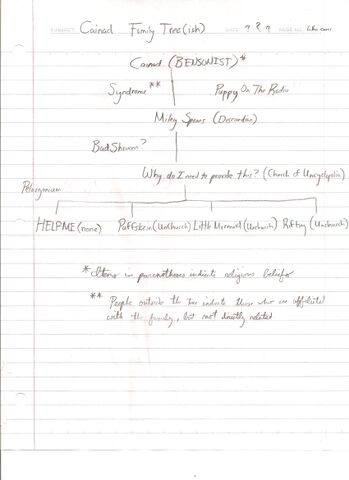 SUBJECT Cainad Family Tree(ish) DATE ? ? ? PAGE NO. like over
Cainad (BENSONIST)*
Syndrome** Puppy On The Radio
Miley Spears (Discordian)
BadShroom?
Why do I need to provide this? (Church of Uncyclopedia)
Pelargonium
HELPME (none) PuffSkein (UnChurch) Little Mermaid (Unchurch) (Unchurch)
*Items in parenotheses indicate religious beliefs
** People outside the tree indicate those who are affiliated
with the family, but not directly related